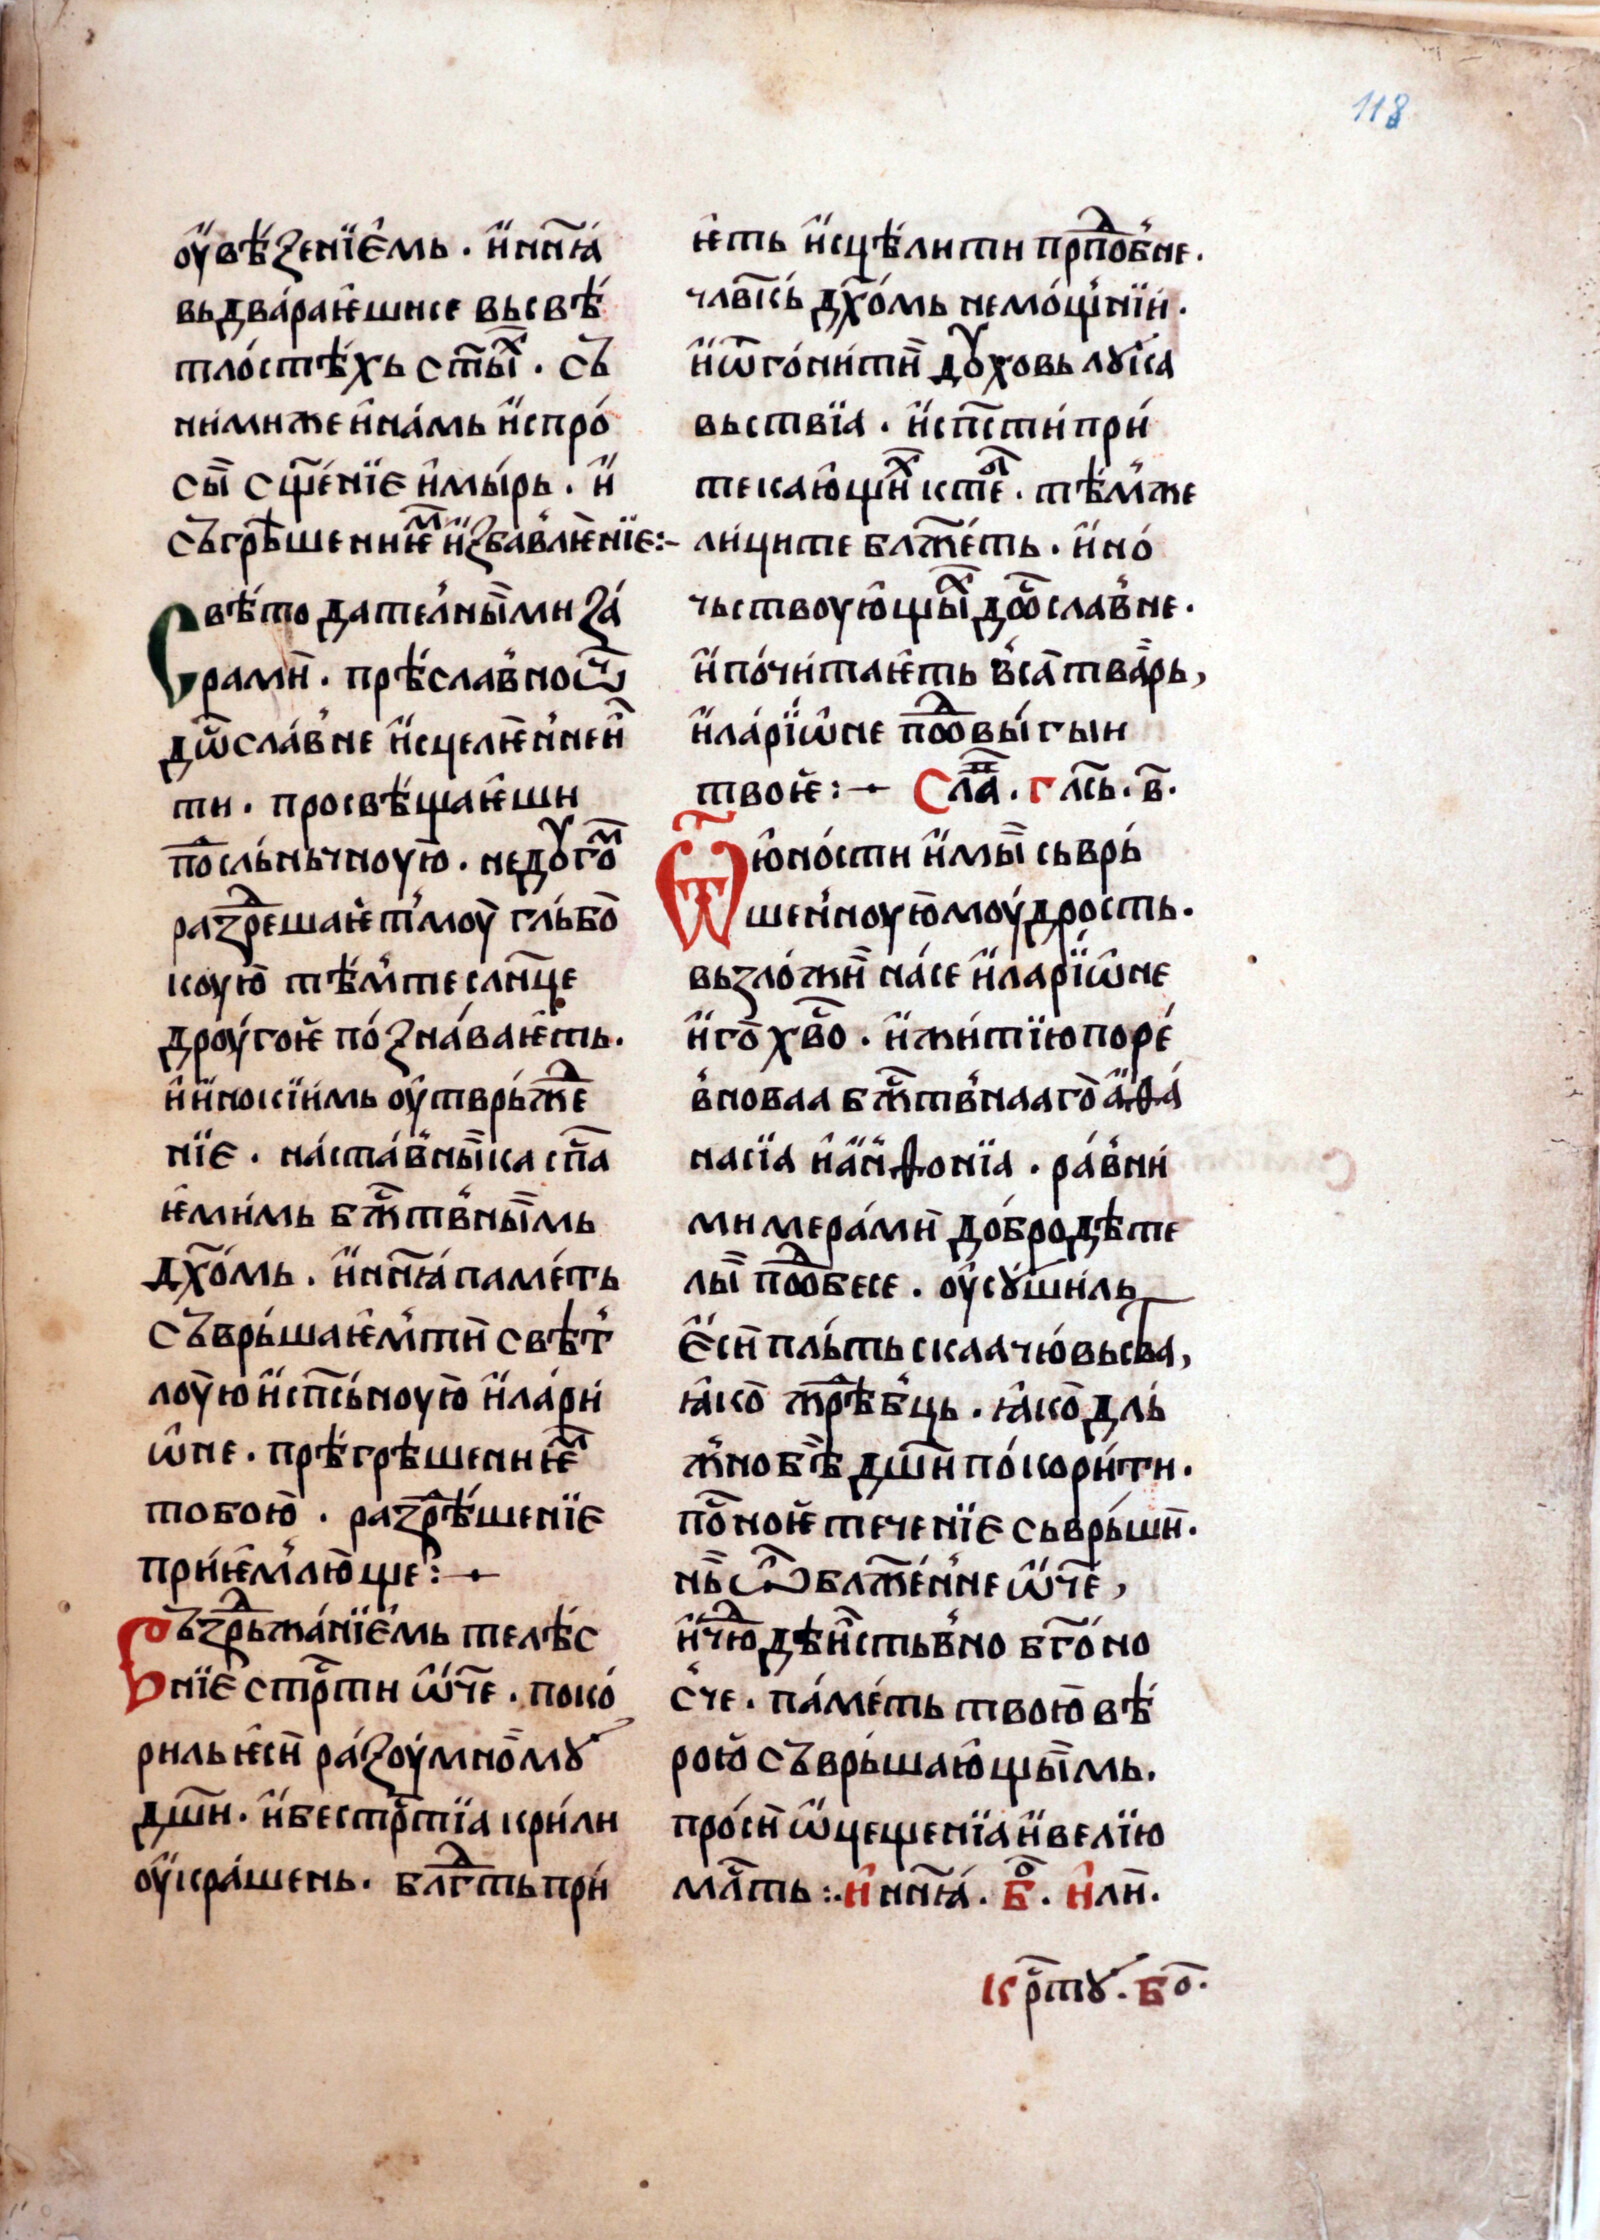 118
ᲂу҆вѣ́зенїе́мь . и҆ нн҃ꙗ
вьдва́раѥши се вь свѣ́
тло́стѣхь ст҃ыⷯ . съ
ними же и҆ на́мь и҆спро́
сы̀ сп҃сенїе и҆ мы́рь . и҆
съгрѣ̀шенниѥⷨ и҆збавлѥнїе :-
Свѣ́тодателны́ми за́
рамѝ . прѣ́славно ѿ
дѡ҃славне и҆сцелѥнне и҆
ти . просвѣща́ѥши
поⷣсльньчноую҆ . недоугоⷨ
разрⷣешаѥ тмоу̀ гльбо̀
коую҆ тѣ́м те сл҃нце
дроу́гоѥ по́знава́ѥть .
и҆ и҆нокїимь ᲂу҆тврьжⷣе
нїе . на́ста́вны̀ка сп҃а
ѥми́мь бжⷭ҇твны̀мь
дх҃о́мь . и҆ нн҃ꙗ па́ме́ть
съврь́шаѥм тѝ свѣт
лоу̀ю и҆ сп҃сьноую҆ и҆ла́ри
ѡ҆не . прѣ́грѣшенниѥⷨ
тобою҆ . разрⷣѣ́шенїе
при́ѥмлю҆ще : ~
Въздрⷤьжа́нїе́мь телѣ́с
нїе́ стрⷭ҇ти ѡ҆́ч҃е . поко́
риль ѥсѝ ра́зоу́мно̀мꙋ
дш҃и . и҆ бестрⷭ҇тїа кри́ли
ᲂу҆кра́шень . блгⷣть при́
ѥть и҆сцѣ́лити прпⷣобне .
члв҃кь дх҃о́мь немо́щнїи .
и҆ ѿго́нитѝ доуховь лꙋка
вьствїа . и҆ сп҃сти́ при́
текаю҆щиⷯ к тебⷠе . тѣ́мже
лици те блж҃еть . и҆но́
чьствоую҆щыⷯ дѡ҃славне .
и҆ по́читаѥть вса̀ тва̀рь ,
и҆ла́рїѡ҆не поⷣвы́гы и
твоѥ : ~ Слаⷡ҇ . глⷭ҇ь . в҃ .
Ѿ ю҆но́сти и҆мы̀ сьврь́
шенноую҆ моу́дрость .
вьзло́жѝ на́ се и҆ларїѡ҆не
и҆го̀ хв҃о . и҆ жи́тїю поре́
вновал бжⷭ҇твнааго̀ а҆ѳа́
насїа и҆ а҆нѳонїа . ра́вни́
ми мера́мѝ до́бродѣте
лы̀ поⷣбе се . ᲂу҆сꙋ́шиль
е҆сѝ пль́тьскаа чю́вьсва ,
ꙗ҆ко̀ жрⷣѣбць . ꙗ҆ко̀ дль́
жно бѣ̀ дш҃и по́кори́ти .
поⷭ҇ноѥ течен́їе сьврь́шѝ .
нь̀ ѽ блж҃е́нне ѡ҆ч҃е ,
и҆ чюⷣдѣи҆стьвно бг҃о́но
сче . па́ме́ть твою҆ вѣ́
рою съврь́шаю҆щы̀мь .
про́сѝ ѡ҆цещенїа и҆ велїю
млⷭ҇ть :. и҆ нн҃ꙗ . бⷪ҇ . и҆лѝ .
крⷭ҇тꙋ . бо .